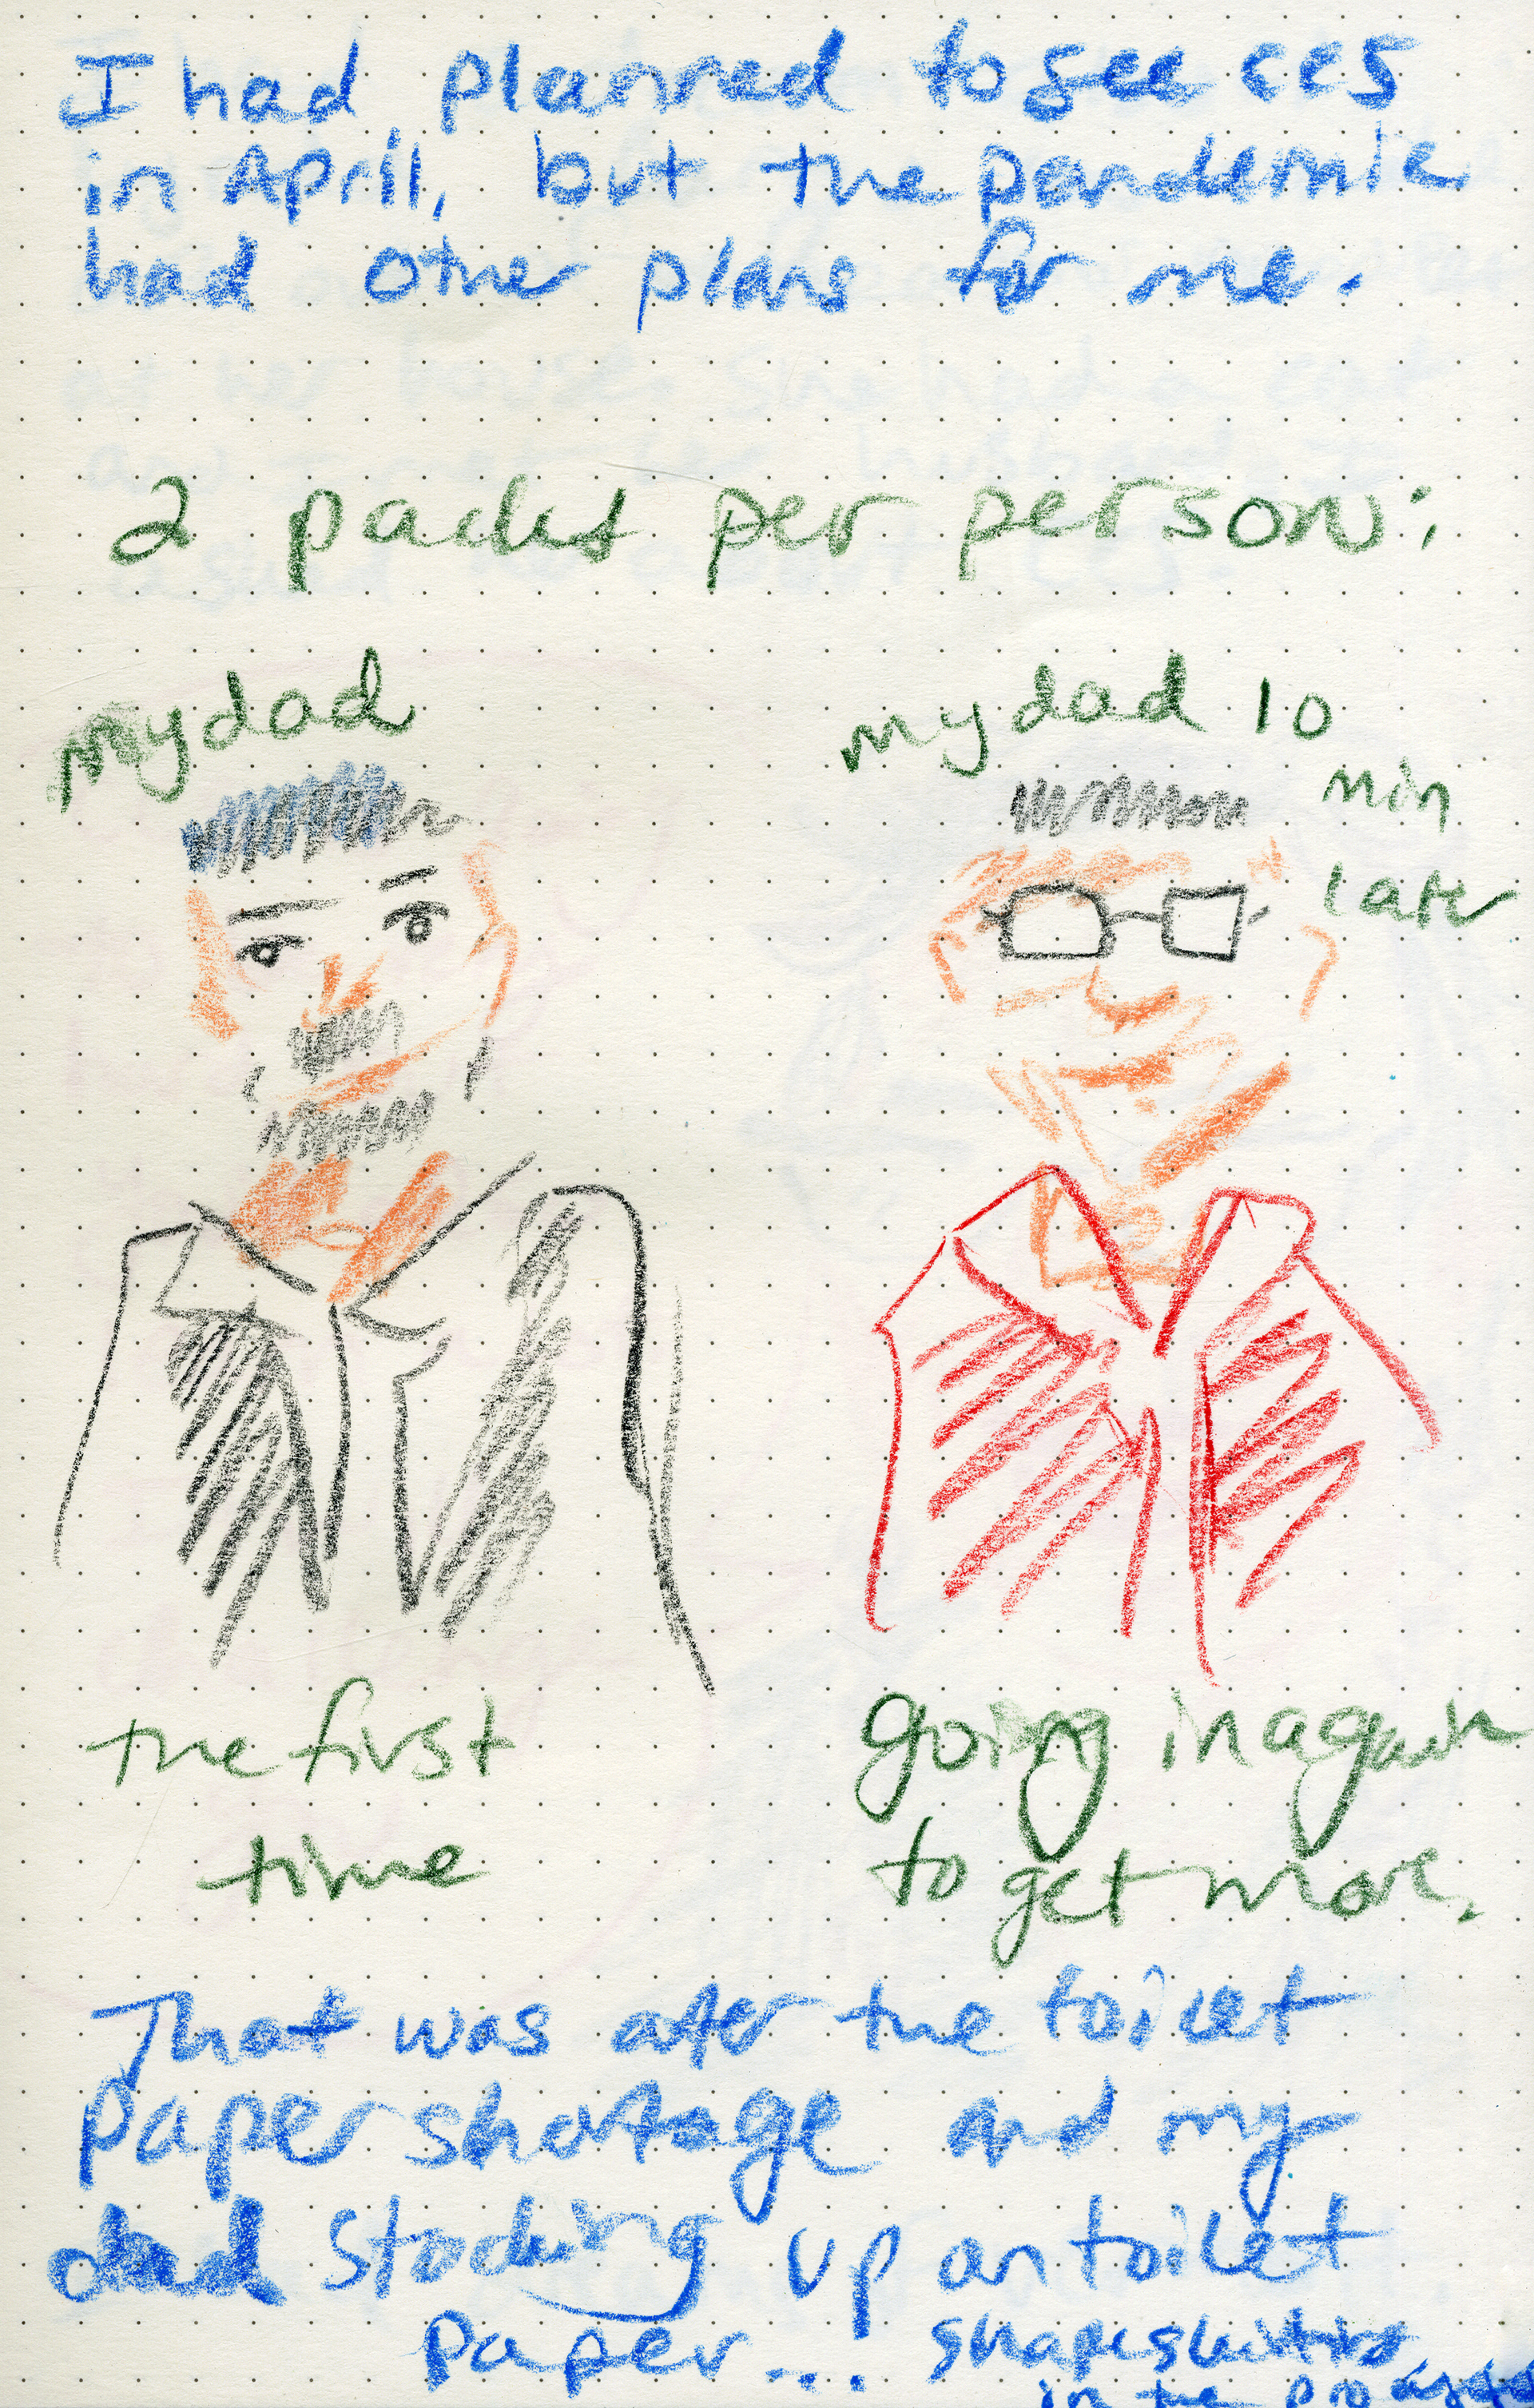 I had planned to see ccs
in April, but the pandemic
had other plans for me.
2 packs per person:
my dad
my dad 10
min
later
the first
time
going in again
to get more.
That was after the toilet
paper shortage and my
dad stocking up on toilet
paper... shapeshifting
in the process